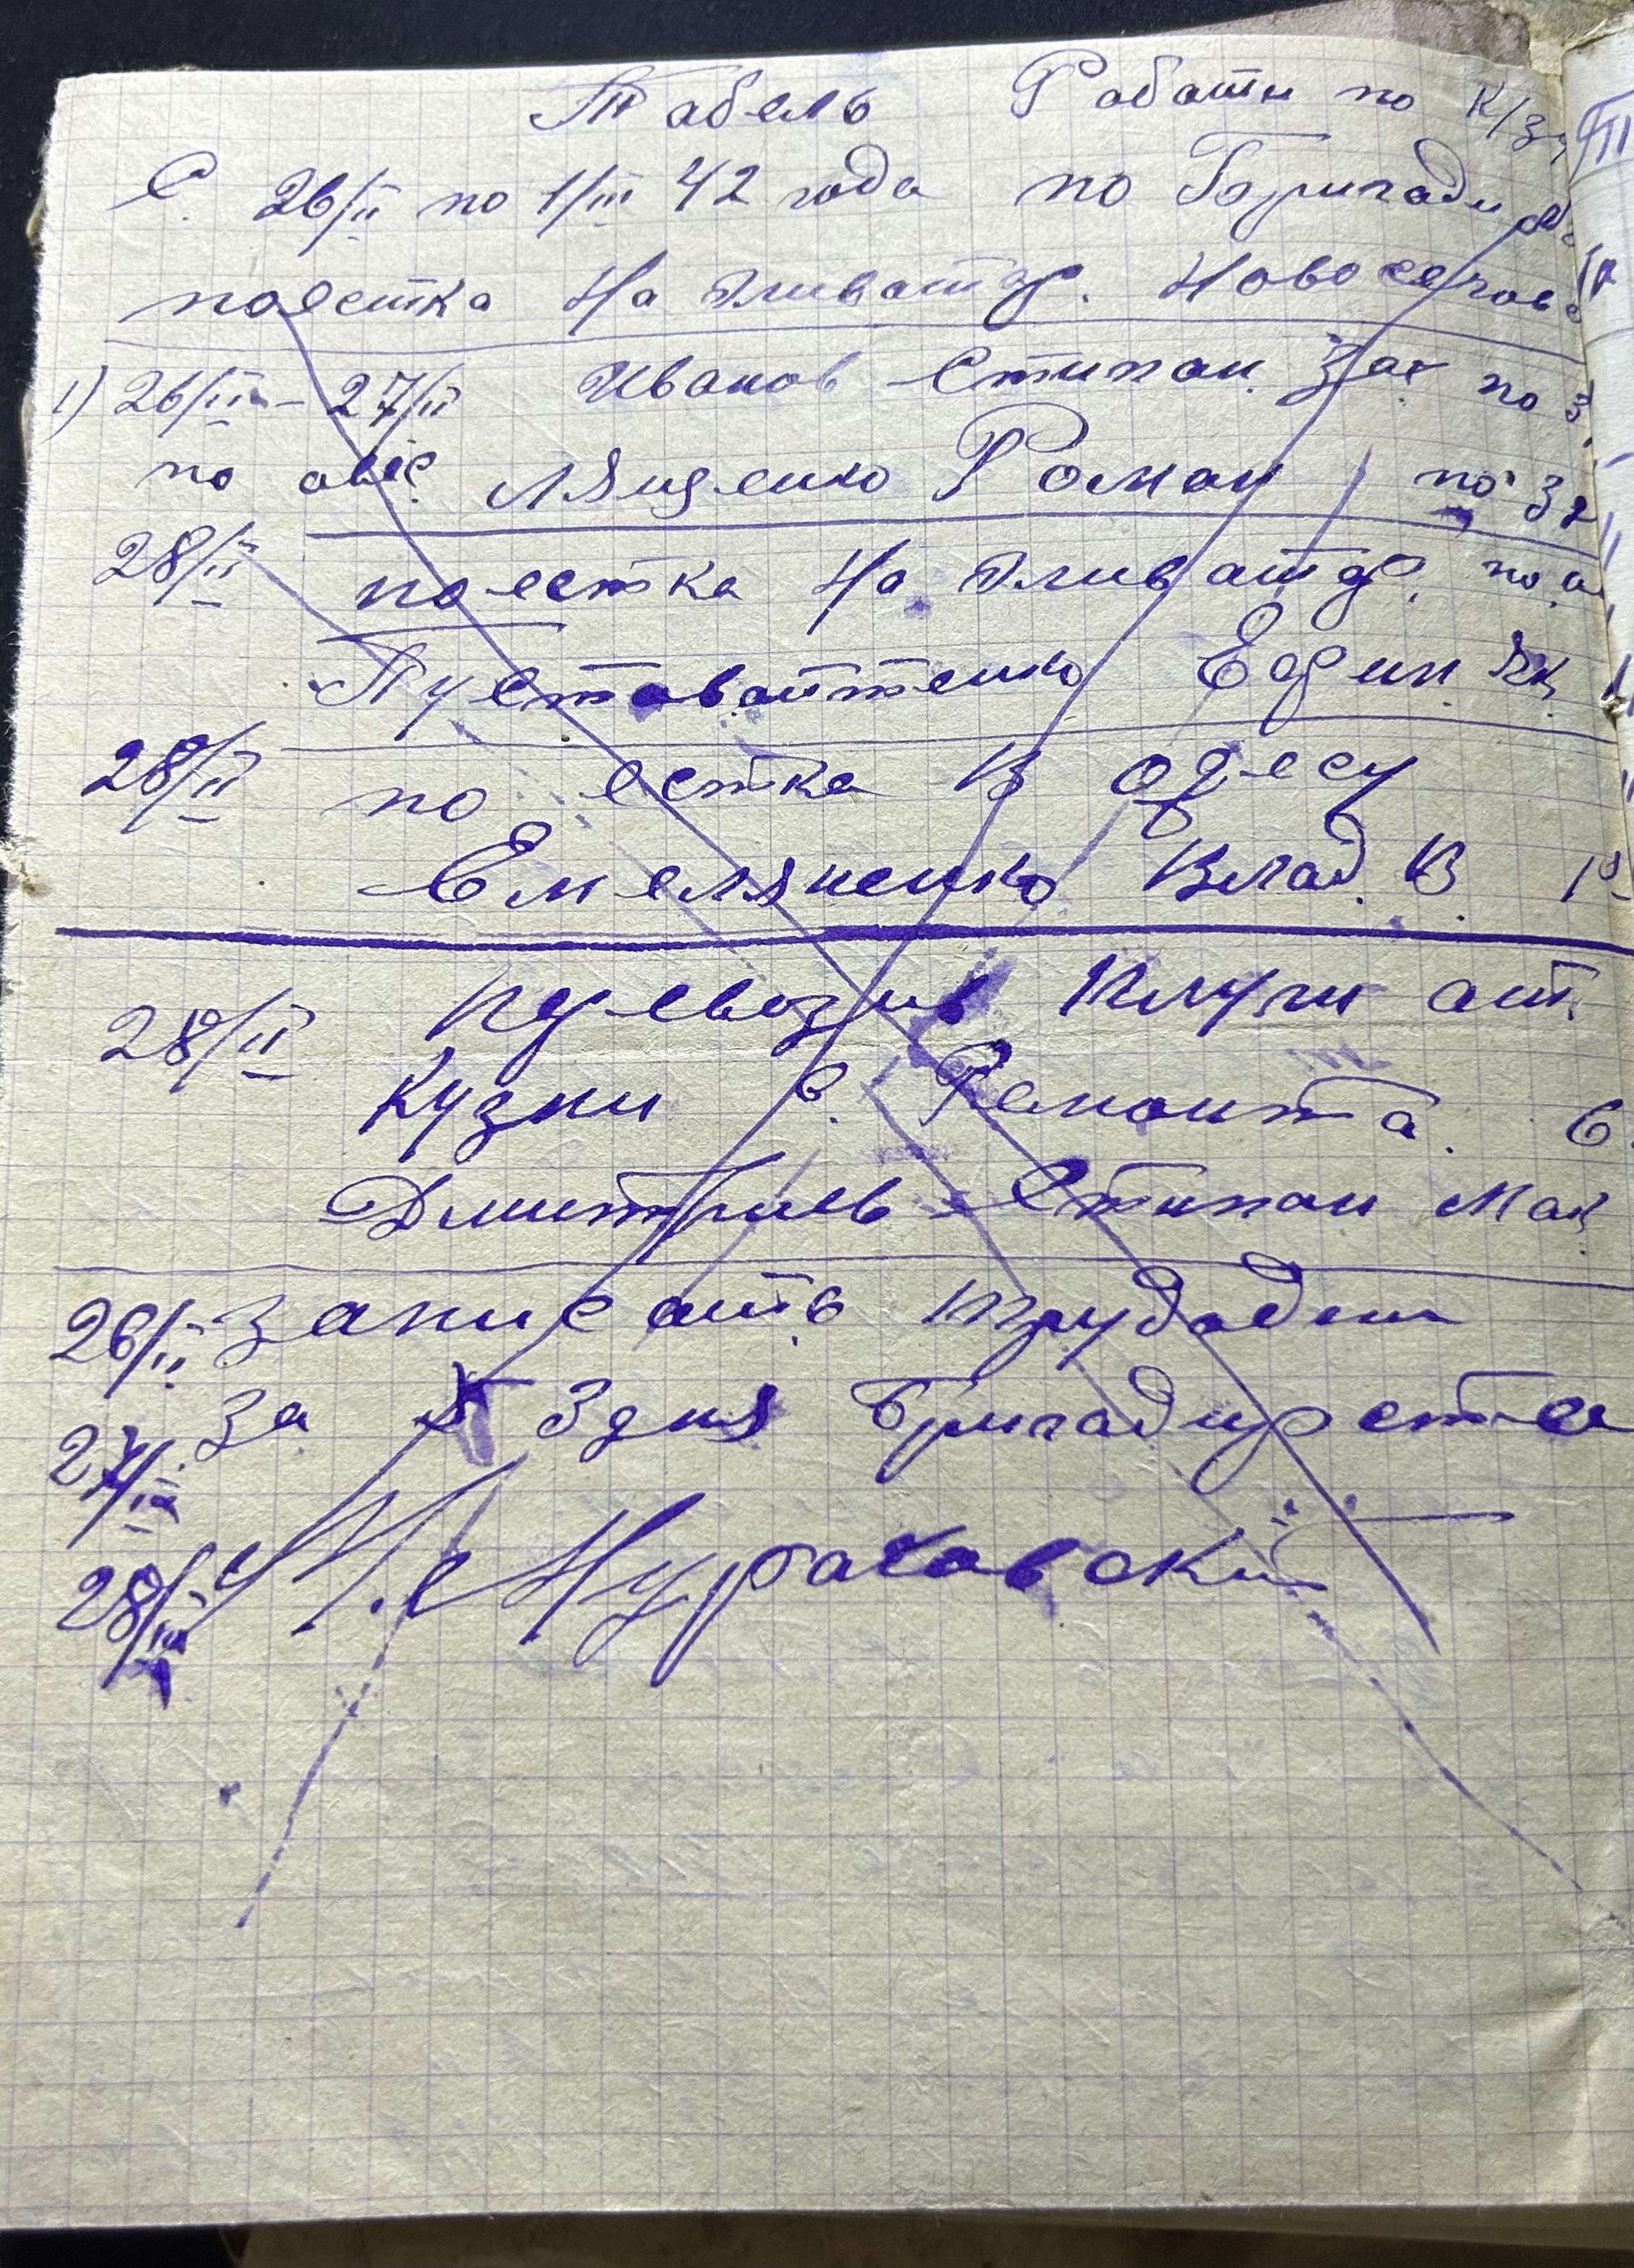 Табель Работи по К/з
С. 26/II по 1/III 42 года по Бригади
поестка На Эливатор. Новоселов
1) 26/II - 27/II Иванов Стипан Зах по 3
по Лященко Роман по 3
28/II поестка На Эливатор. по
Пустовойтенко Ефдин. Як.
28/II поестка в Одесу
Емеляненко Влад. В. 1
28/II Перевозив Плуги от
Кузни с. Ремонта. 6
Дмитриев Стипан Мак
26/II Записать трудодни
27/II за 3 дня Бригадирства
28/II Кураховский